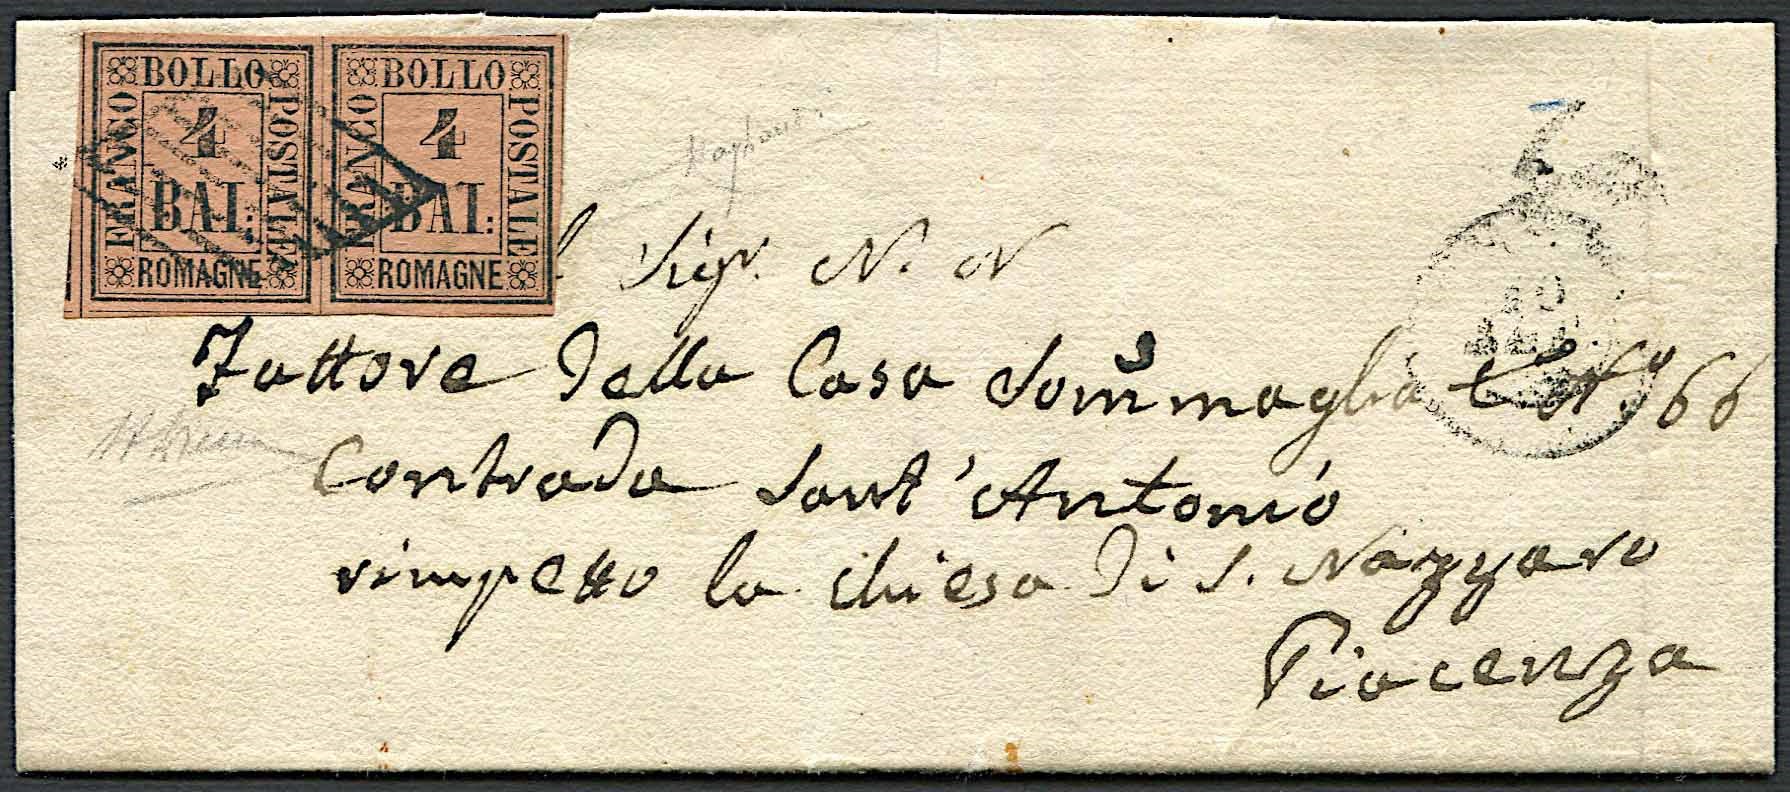 BOLLO
FRANCO
4
BAI:
POSTALE
ROMAGNE
BOLLO
FRANCO
4
BAI:
POSTALE
ROMAGNE
l Sigr. N. N
Fattore della Casa Sommaglia 66
Contrada Sant' Antonio
rimpetto la Chiesa di S. Nazzaro
Piacenza